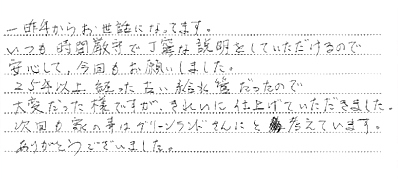 一昨年からお世話になってます。
いつも時間厳守で丁寧な説明をしていただけるので
安心して、今回もお願いしました。
25年以上経った古い給水管だったので
大変だった様ですが、きれいに仕上げていただきました。
次回も家の事はグリーンランドさんにと考えています。
ありがとうございました。